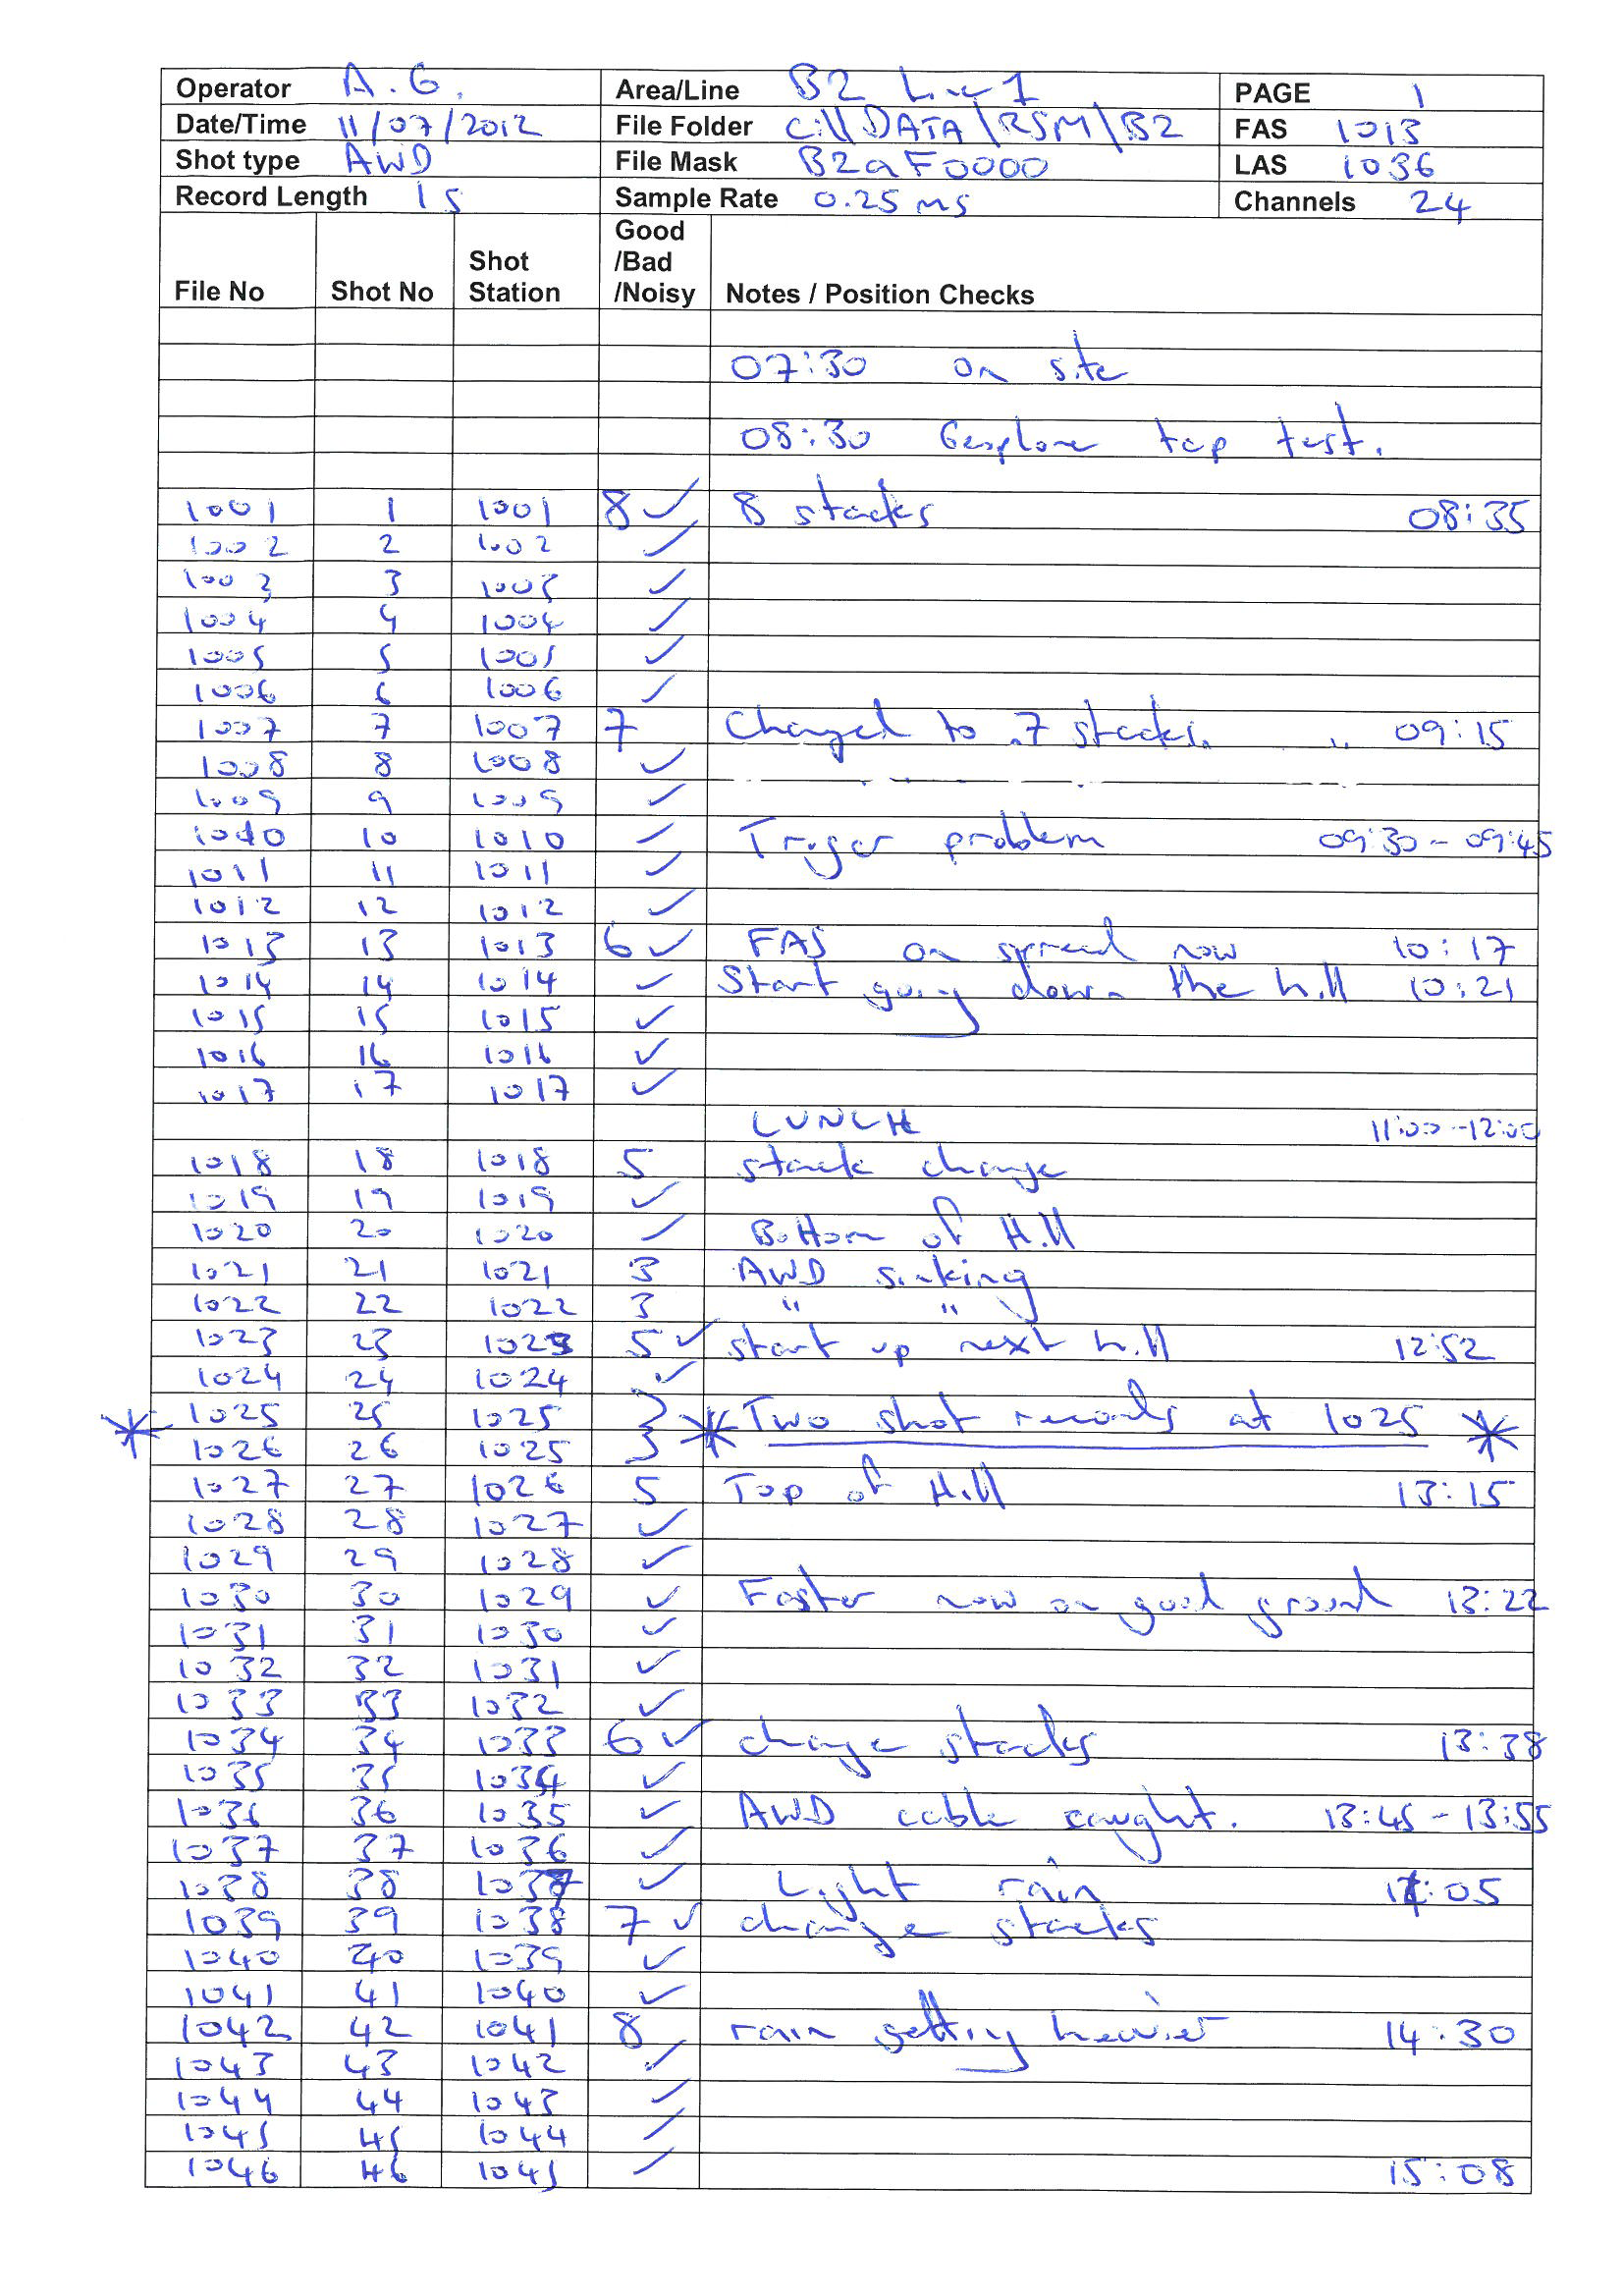 Operator A.G. Area/Line B2 Line 1 PAGE 1
Date/Time 11/07/2012 File Folder C:\\DATA\RSM\B2 FAS 1013
Shot type AWD File Mask B2aF0000 LAS 1036
Record Length 1s Sample Rate 0.25 ms Channels 24
File No Shot No Shot Station Good /Bad /Noisy Notes / Position Checks
07:30 on site
08:30 Geophone tap test.
1001 1 1001 8 ✓ 8 stacks 08:35
1002 2 1002 ✓
1003 3 1003 ✓
1004 4 1004 ✓
1005 5 1005 ✓
1006 6 1006 ✓
1007 7 1007 7 Changed to 7 stacks. " 09:15
1008 8 1008 ✓
1009 9 1009 ✓
1010 10 1010 ✓ Trigger problem 09:30 - 09:45
1011 11 1011 ✓
1012 12 1012 ✓
1013 13 1013 6 ✓ FAS on spread now 10:17
1014 14 1014 ✓ Start going down the hill 10:21
1015 15 1015 ✓
1016 16 1016 ✓
1017 17 1017 ✓
LUNCH 11:00 - 12:00
1018 18 1018 5 stack change
1019 19 1019 ✓
1020 20 1020 ✓ Bottom of Hill
1021 21 1021 3 AWD sinking
1022 22 1022 3 " "
1023 23 1023 5 ✓ start up next hill 12:52
1024 24 1024 ✓
* 1025 25 1025 3 * Two shot records at 1025 *
1026 26 1025 3
1027 27 1026 5 Top of Hill 13:15
1028 28 1027 ✓
1029 29 1028 ✓
1030 30 1029 ✓ Faster now on good ground 13:22
1031 31 1030 ✓
1032 32 1031 ✓
1033 33 1032 ✓
1034 34 1033 6 ✓ change stacks 13:38
1035 35 1034 ✓
1036 36 1035 ✓ AWD cable caught. 13:45 - 13:55
1037 37 1036 ✓
1038 38 1037 ✓ Light rain 14:05
1039 39 1038 7 ✓ change stacks
1040 40 1039 ✓
1041 41 1040 ✓
1042 42 1041 8 rain getting heavier 14:30
1043 43 1042 ✓
1044 44 1043 ✓
1045 45 1044 ✓
1046 46 1045 ✓ 15:08